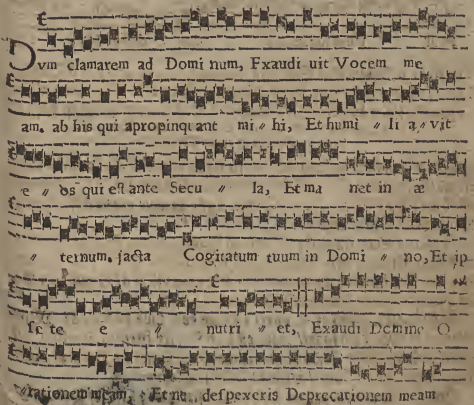 Dvm clamarem ad Domi num, Exaudi uit Vocem me
am, ab his qui apropinqu ant mi〃hi, Et humi〃li a〃vit
e〃os qui est ante Secu〃la, Et ma net in æ
〃ternum, jacta Cogitatum tuum in Domi〃no, Et ip
se te e〃nutri〃et, Exaudi Domine O
rationem meam, Et ne despexeris Deprecationem meam